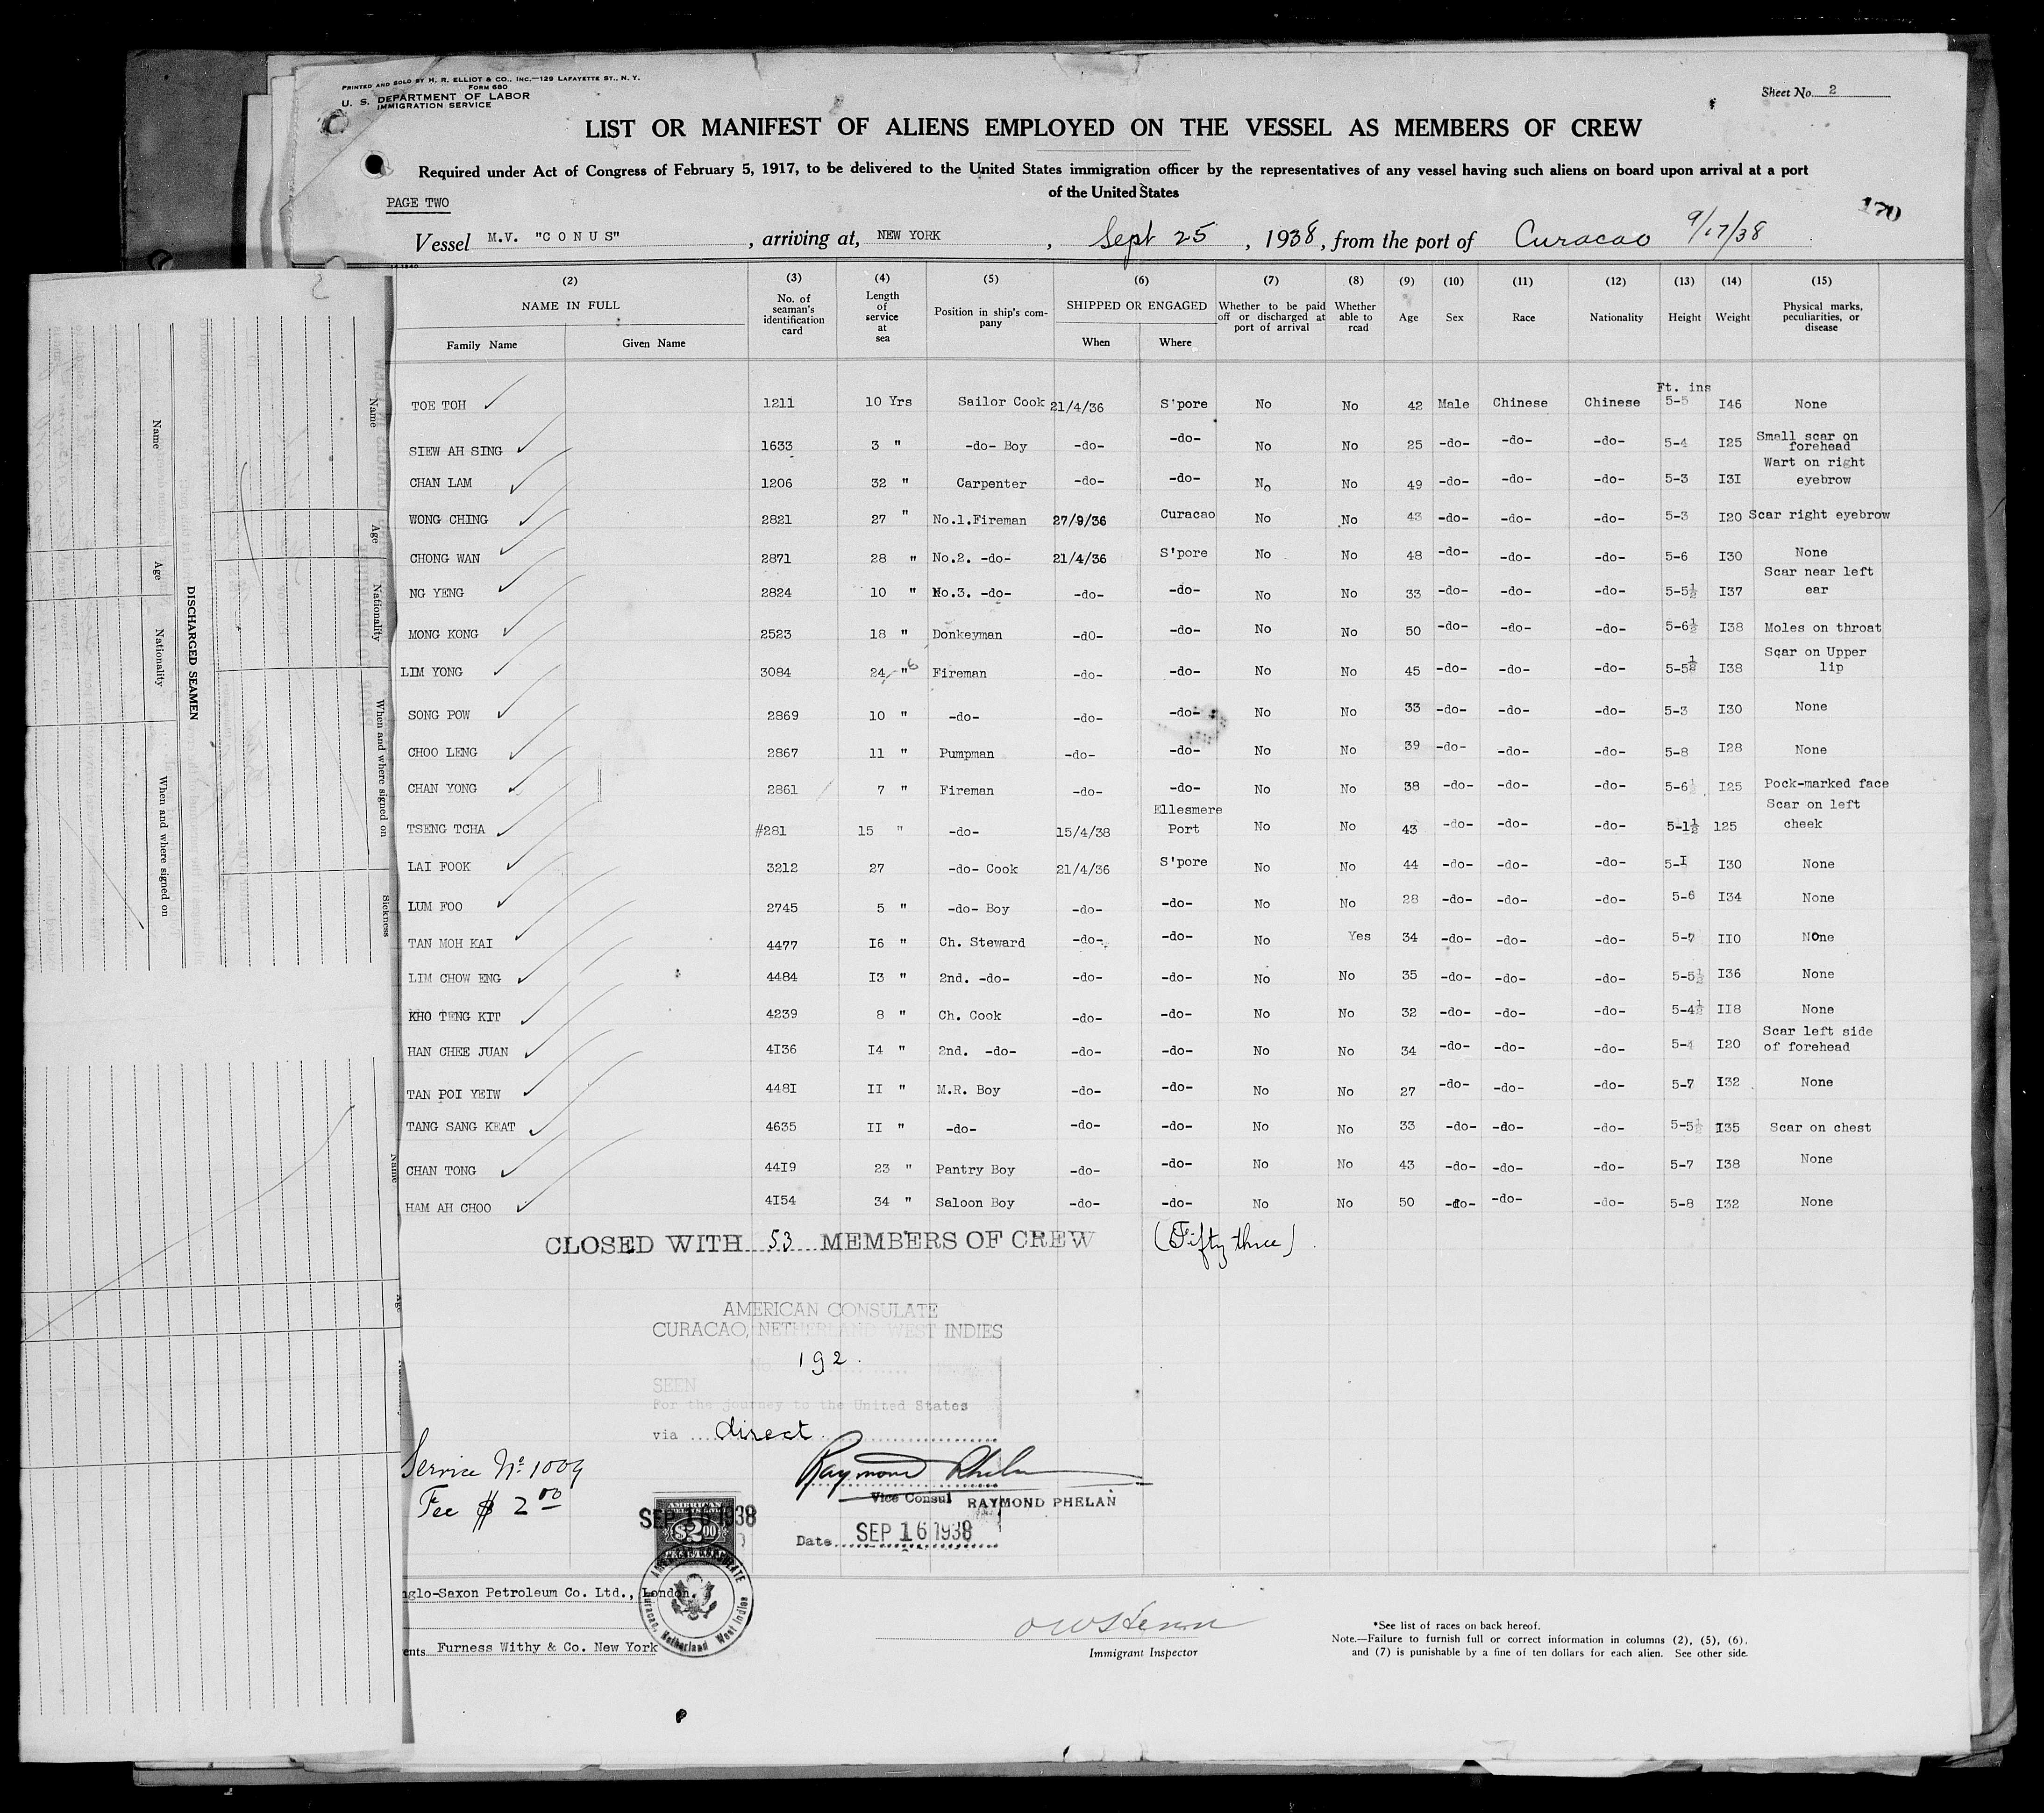 PRINTED AND SOLD BY H. R. ELLIOT & CO., INC.—129 LAFAYETTE ST., N. Y.
FORM 680
U. S. DEPARTMENT OF LABOR
IMMIGRATION SERVICE
Sheet No. 2
LIST OR MANIFEST OF ALIENS EMPLOYED ON THE VESSEL AS MEMBERS OF CREW
Required under Act of Congress of February 5, 1917, to be delivered to the United States immigration officer by the representatives of any vessel having such aliens on board upon arrival at a port
of the United States
PAGE TWO
170
Vessel M.V. "CONUS", arriving at, NEW YORK, Sept 25, 1938, from the port of Curacao 9/17/38
(2) (3) (4) (5) (6) (7) (8) (9) (10) (11) (12) (13) (14) (15)
NAME IN FULL No. of seaman's identification card Length of service at sea Position in ship's company SHIPPED OR ENGAGED Whether to be paid off or discharged at port of arrival Whether able to read Age Sex Race Nationality Height Weight Physical marks, peculiarities, or disease
Family Name Given Name When Where
Ft. ins
TOE TOH 1211 10 Yrs Sailor Cook 21/4/36 S'pore No No 42 Male Chinese Chinese 5-5 I46 None
SIEW AH SING 1633 3 " -do- Boy -do- -do- No No 25 -do- -do- -do- 5-4 I25 Small scar on forehead
CHAN LAM 1206 32 " Carpenter -do- -do- No No 49 -do- -do- -do- 5-3 I3I Wart on right eyebrow
WONG CHING 2821 27 " No.1.Fireman 27/9/36 Curacao No No 43 -do- -do- -do- 5-3 I20 Scar right eyebrow
CHONG WAN 2871 28 " No.2. -do- 21/4/36 S'pore No No 48 -do- -do- -do- 5-6 I30 None
NG YENG 2824 10 " No.3. -do- -do- -do- No No 33 -do- -do- -do- 5-5½ I37 Scar near left ear
MONG KONG 2523 18 " Donkeyman -do- -do- No No 50 -do- -do- -do- 5-6½ I38 Moles on throat
LIM YONG 3084 24 " 6 Fireman -do- -do- No No 45 -do- -do- -do- 5-5½ I38 Scar on Upper lip
SONG POW 2869 10 " -do- -do- -do- No No 33 -do- -do- -do- 5-3 I30 None
CHOO LENG 2867 11 " Pumpman -do- -do- No No 39 -do- -do- -do- 5-8 I28 None
CHAN YONG 2861 7 " Fireman -do- -do- No No 38 -do- -do- -do- 5-6½ I25 Pock-marked face
TSENG TCHA #281 15 " -do- 15/4/38 Ellesmere Port No No 43 -do- -do- -do- 5-1½ 125 Scar on left cheek
LAI FOOK 3212 27 -do- Cook 21/4/36 S'pore No No 44 -do- -do- -do- 5-I I30 None
LUM FOO 2745 5 " -do- Boy -do- -do- No No 28 -do- -do- -do- 5-6 I34 None
TAN MOH KAI 4477 I6 " Ch. Steward -do- -do- No Yes 34 -do- -do- -do- 5-7 II0 NOne
LIM CHOW ENG 4484 I3 " 2nd. -do- -do- -do- No No 35 -do- -do- -do- 5-5½ I36 None
KHO TENG KIT 4239 8 " Ch. Cook -do- -do- No No 32 -do- -do- -do- 5-4½ II8 None
HAN CHEE JUAN 4I36 I4 " 2nd. -do- -do- -do- No No 34 -do- -do- -do- 5-4 I20 Scar left side of forehead
TAN POI YEIW 448I II " M.R. Boy -do- -do- No No 27 -do- -do- -do- 5-7 I32 None
TANG SANG KEAT 4635 II " -do- -do- -do- No No 33 -do- -do- -do- 5-5½ I35 Scar on chest
CHAN TONG 44I9 23 " Pantry Boy -do- -do- No No 43 -do- -do- -do- 5-7 I38 None
HAM AH CHOO 4I54 34 " Saloon Boy -do- -do- No No 50 -do- -do- -do- 5-8 I32 None
CLOSED WITH 53 MEMBERS OF CREW (Fifty three)
AMERICAN CONSULATE
CURACAO, NETHERLAND WEST INDIES
192.
SEEN
For the journey to the United States
via direct
Service No 1009
Fee $ 2 00
Raymond Phelan
Vice Consul RAYMOND PHELAN
Date SEP 16 1938
SEP 16 1938
AMERICAN
$2.00
AMERICAN CONSULATE
Curacao, Netherland West Indies
nglo-Saxon Petroleum Co. Ltd., London.
ents Furness Withy & Co. New York
Immigrant Inspector
*See list of races on back hereof.
Note.—Failure to furnish full or correct information in columns (2), (5), (6),
and (7) is punishable by a fine of ten dollars for each alien. See other side.
DISCHARGED SEAMEN
Name Age Nationality When and where signed on
Name Age Nationality When and where signed on Sickness
Name
Age